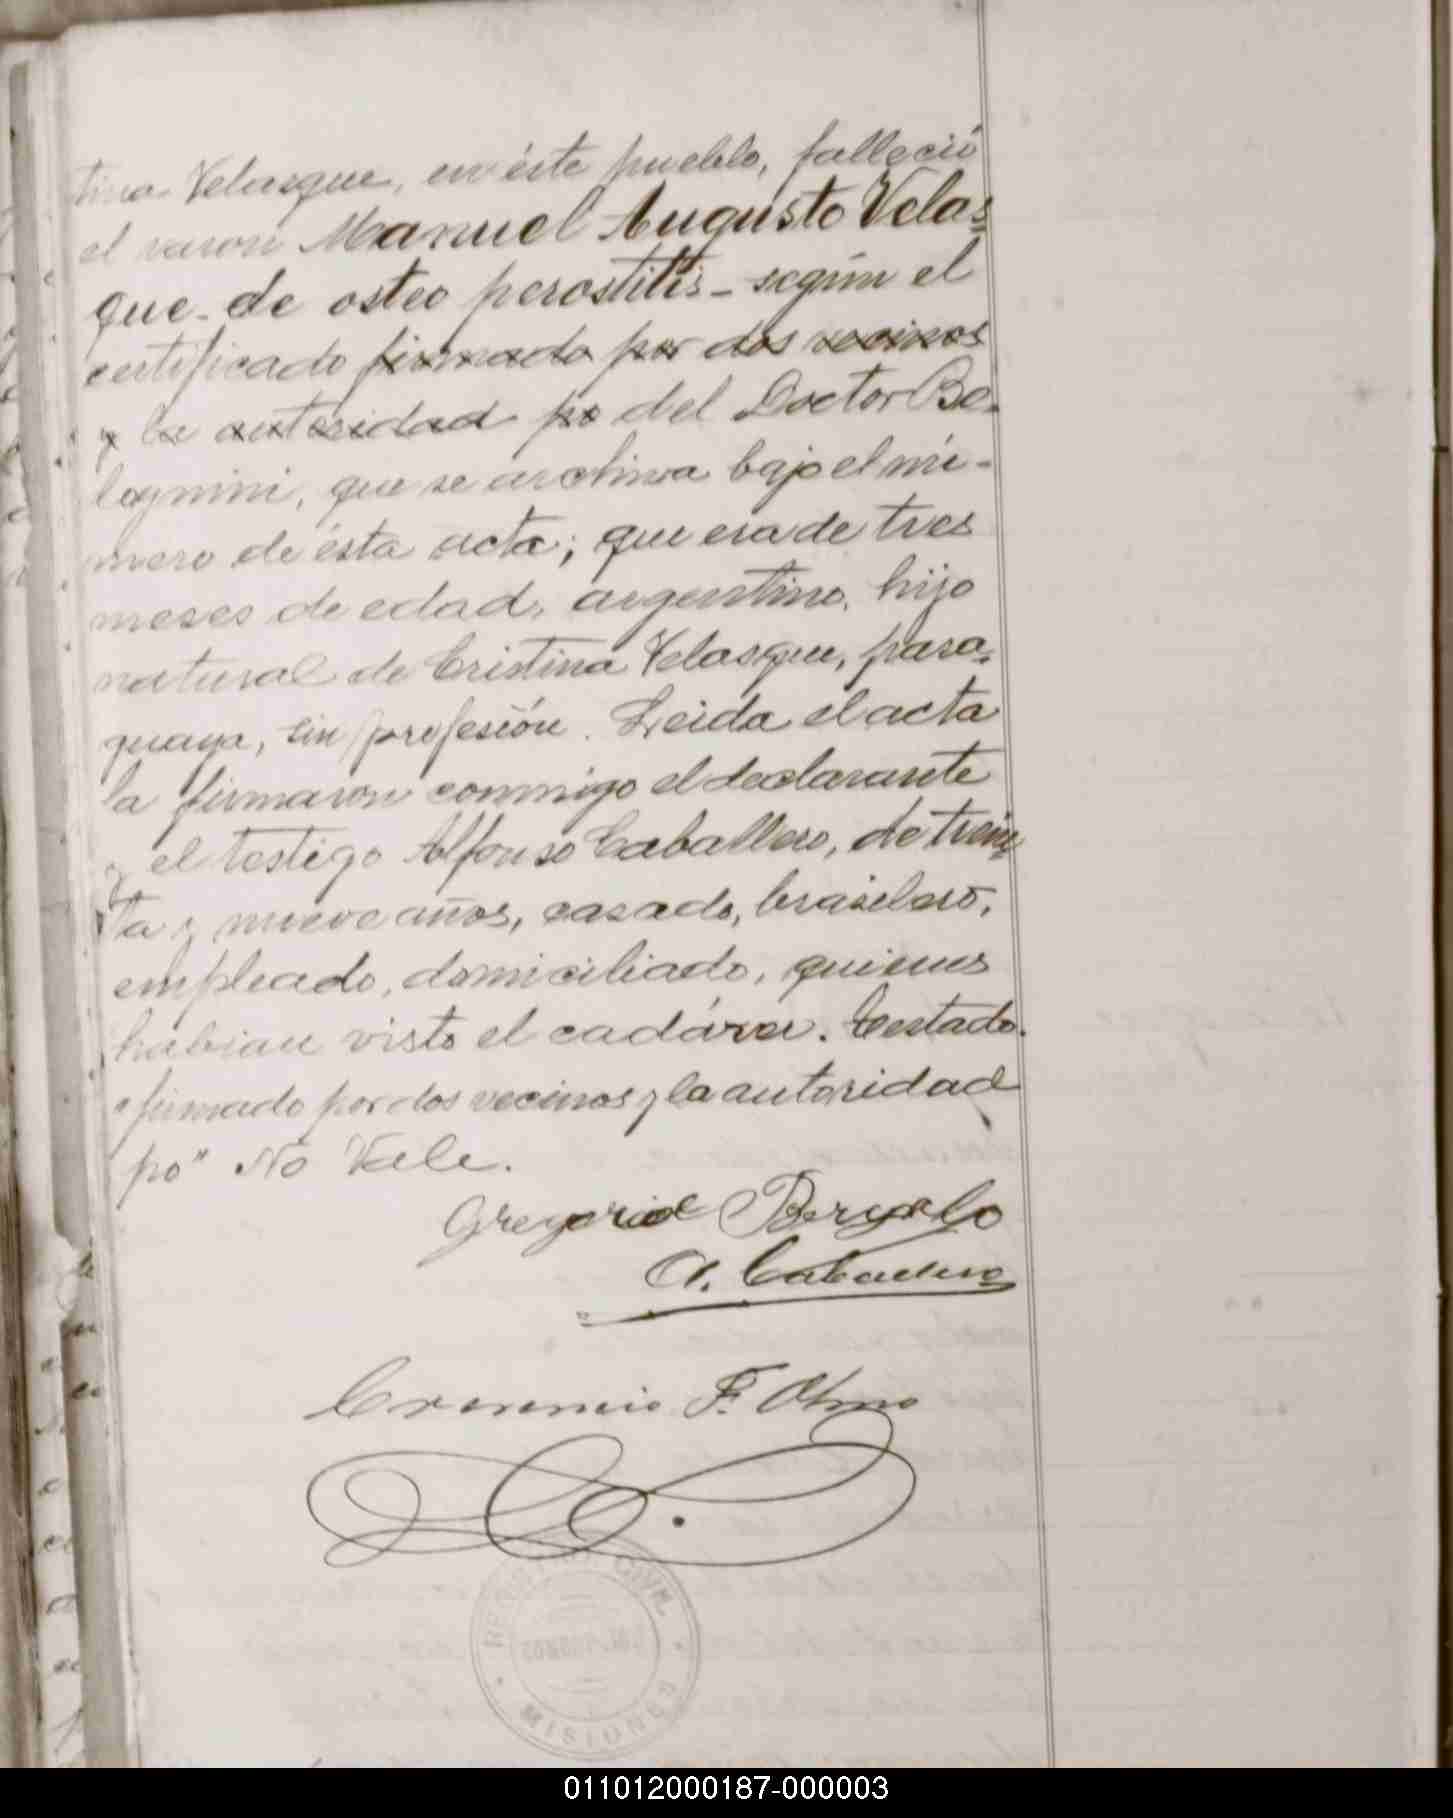 tina Velasque, en éste pueblo, falleció
el varon Manuel Augusto Velas-
que de osteo perostitis - según el
certificado firmado por dos vecinos
y la autoridad po del Doctor Be-
lagnini, que se archiva bajo el nú-
mero de ésta acta; que era de tres
meses de edad, argentino, hijo
natural de Cristina Velasque, para-
guaya, sin profesión. Leida el acta
la firmaron conmigo el declarante
y el testigo Alfonso Caballero, de trein-
ta y nueve años, casado, brasilero,
empleado, domiciliado, quienes
habian visto el cadáver. Testado.
"firmado por dos vecinos y la autoridad
po" No Vale.
Gregorio
A. Caballero
F. Olmo
REGISTRO CIVIL
MISIONES
011012000187-000003